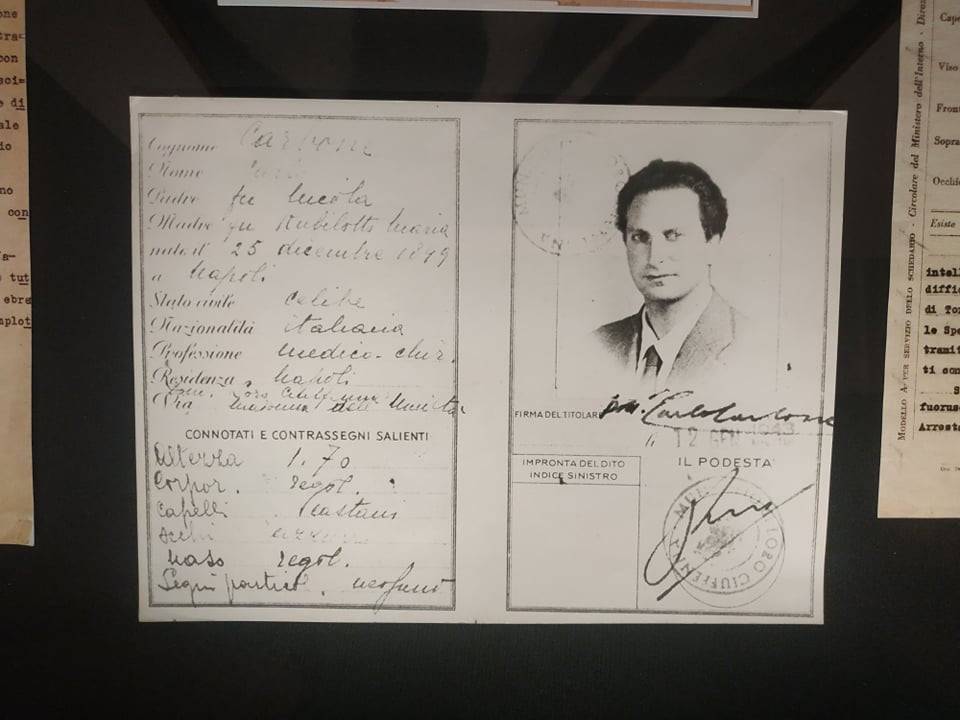 Cognome Carboni
Nome
Padre fu Nicola
Madre fu Rubilotti Maria
nato il 25 dicembre 1899
a Napoli
Stato civile celibe
Nazionalità italiana
Professione medico-chir.
Residenza Napoli
Via Madonna dell' Umiltà
CONNOTATI E CONTRASSEGNI SALIENTI
Altezza 1.70
Corpor. regol.
Capelli castani
occhi azzurri
naso regol.
Segni partic. nessuno
FIRMA DEL TITOLARE
12 GEN 1943
IMPRONTA DEL DITO
INDICE SINISTRO
IL PODESTA'
LORO CIUFFENNA
one
con
sci=
e di
ale
io
no
con
tut
ebre
mplot
MODELLO A PER SERVIZIO DELLO SCHEDARIO - Circolare del Ministero dell'Interno -
Viso
Sopra
Esiste
intell
diffic
di To
le Spe
tramit
ti con
S
fuorus
Arresta